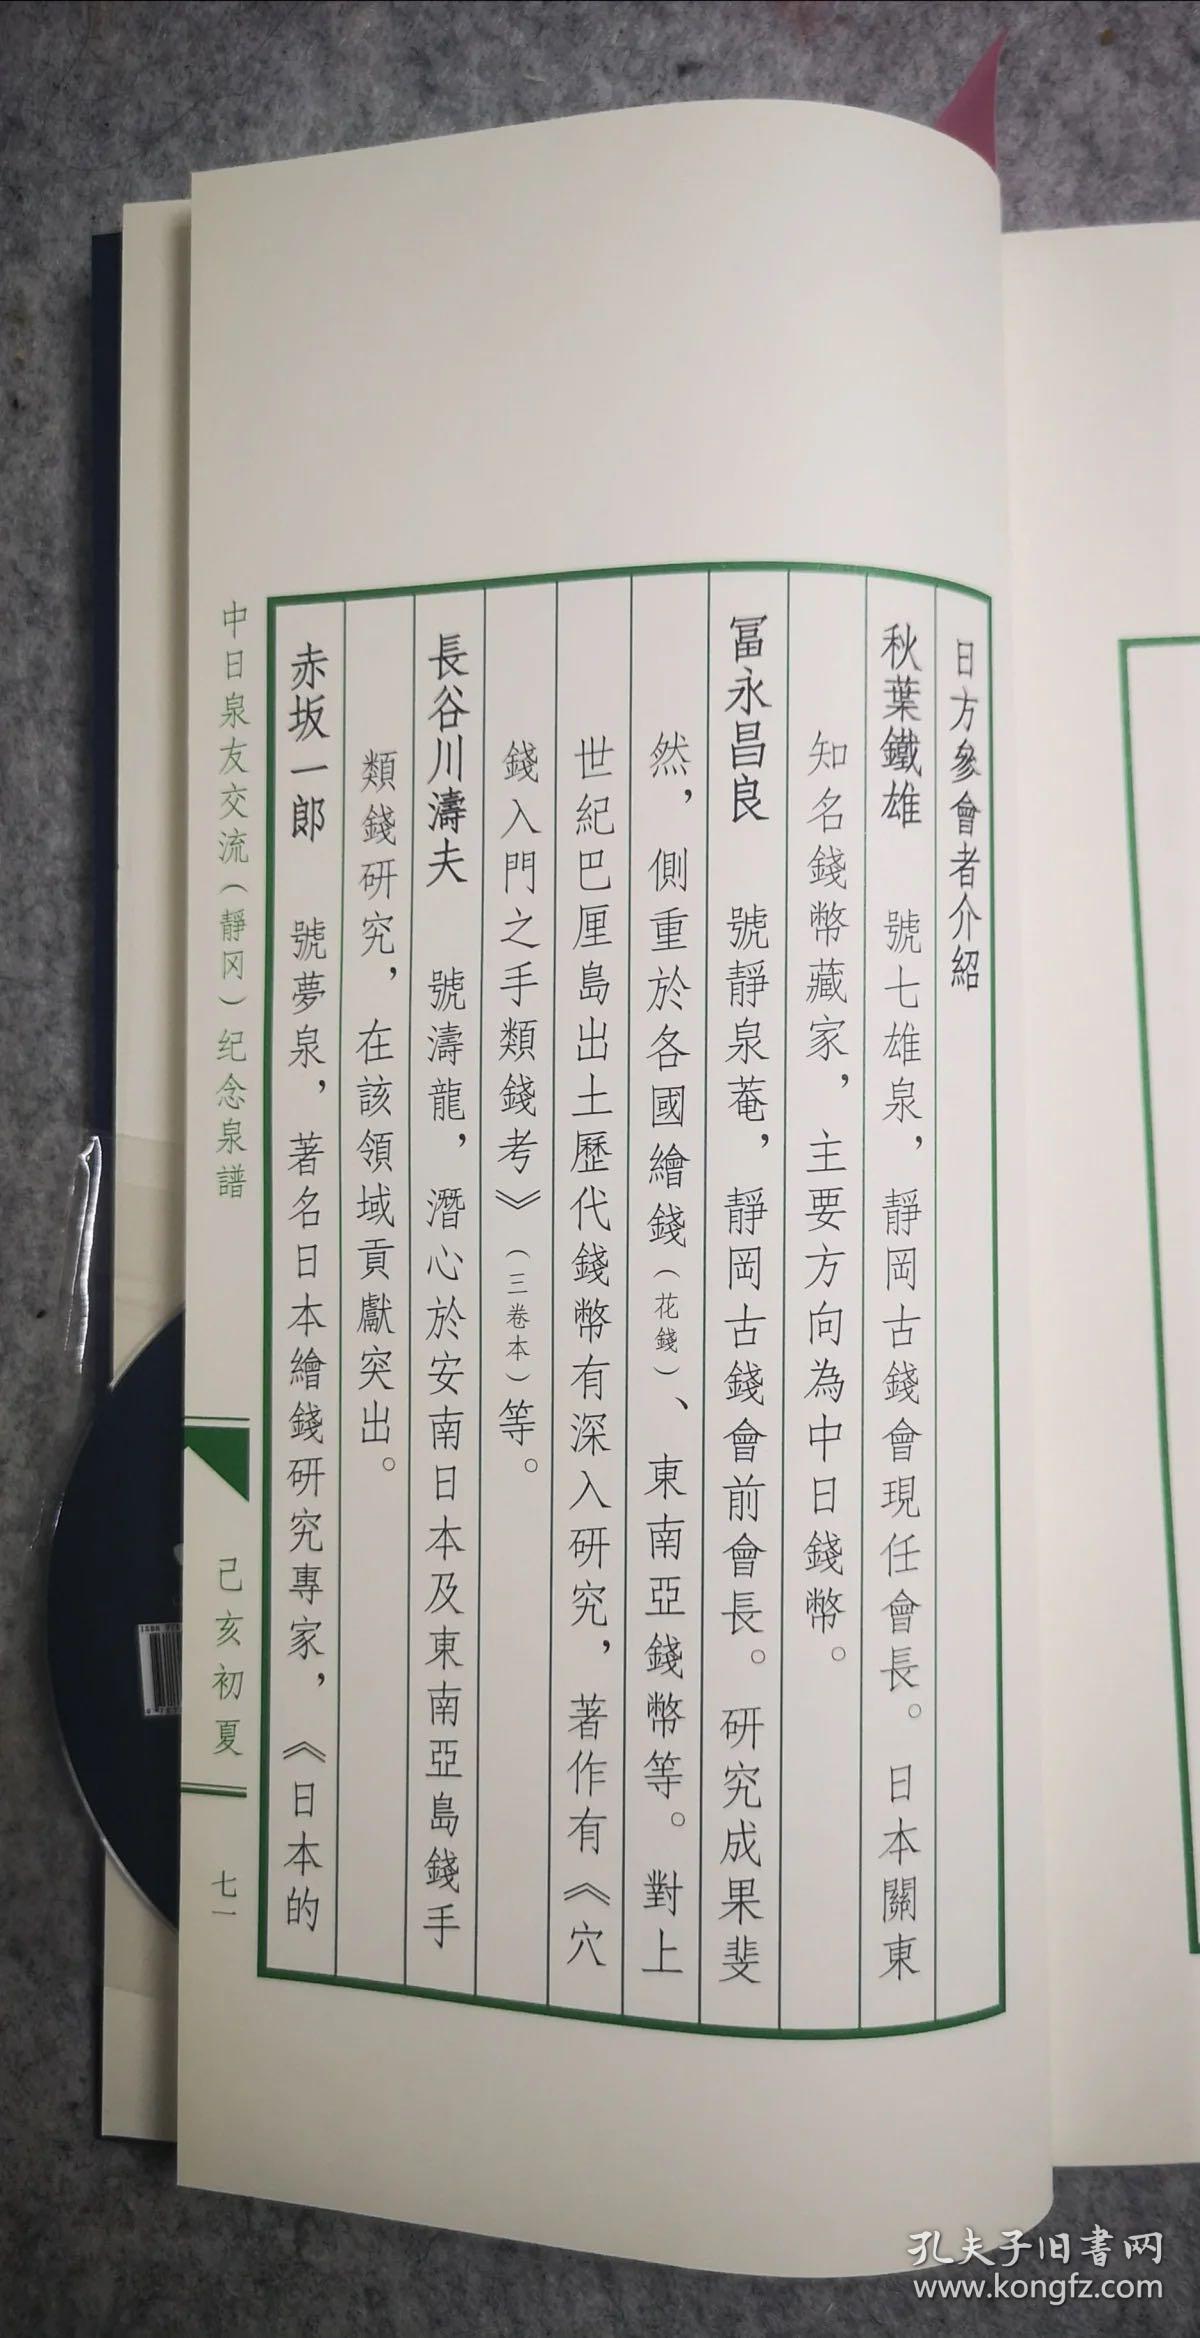 日方參會者介紹
秋葉鐵雄　號七雄泉，靜岡古錢會現任會長。日本關東
知名錢幣藏家，主要方向為中日錢幣。
冨永昌良　號靜泉菴，靜岡古錢會前會長。研究成果斐
然，側重於各國繪錢（花錢）、東南亞錢幣等。對上
世紀巴厘島出土歷代錢幣有深入研究，著作有《穴
錢入門之手類錢考》（三卷本）等。
長谷川濤夫　號濤龍，潛心於安南日本及東南亞島錢手
類錢研究，在該領域貢獻突出。
赤坂一郎　號夢泉，著名日本繪錢研究專家，《日本的
中日泉友交流（靜冈）纪念泉譜
己亥初夏
七一
孔夫子旧書网
www.kongfz.com